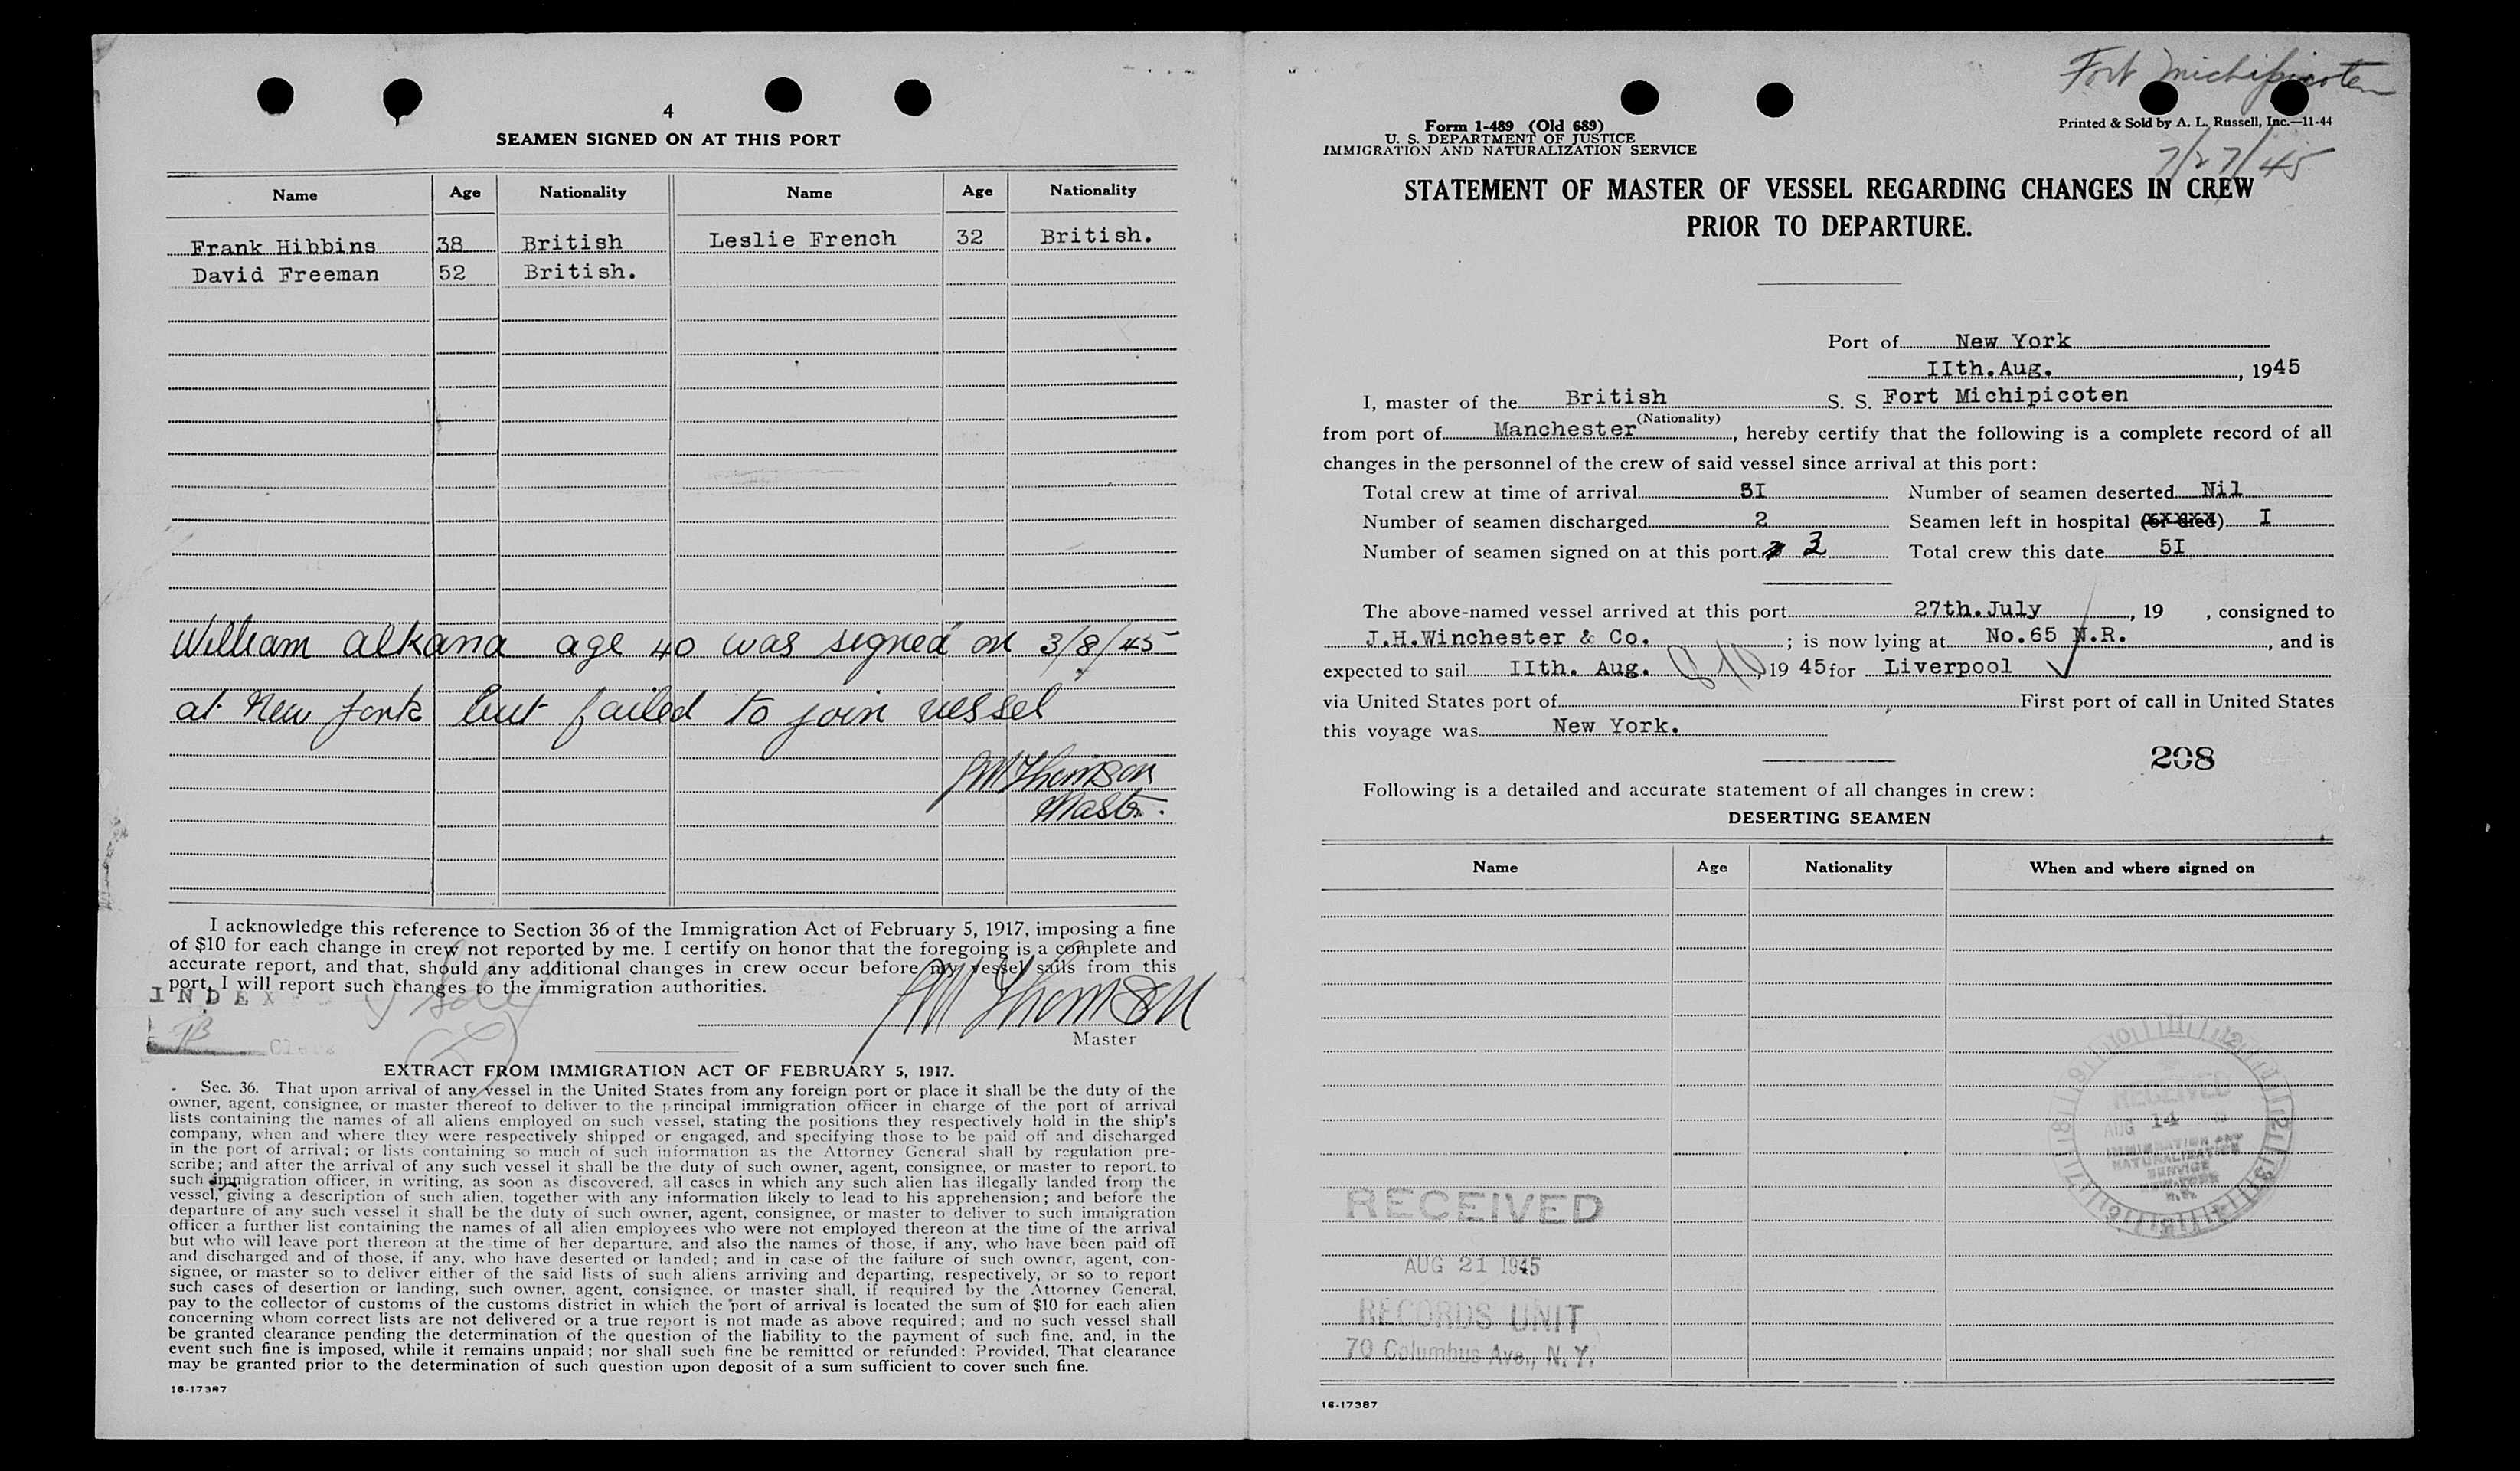 4
SEAMEN SIGNED ON AT THIS PORT
Name Age Nationality Name Age Nationality
Frank Hibbins 38 British Leslie French 32 British.
David Freeman 52 British.
William Alkana age 40 was signed on 3/8/45
at New York but failed to join vessel
Thomson
Master.
I acknowledge this reference to Section 36 of the Immigration Act of February 5, 1917, imposing a fine
of $10 for each change in crew not reported by me. I certify on honor that the foregoing is a complete and
accurate report, and that, should any additional changes in crew occur before my vessel sails from this
port, I will report such changes to the immigration authorities.
INDEX
Thomson
Master
EXTRACT FROM IMMIGRATION ACT OF FEBRUARY 5, 1917.
Sec. 36. That upon arrival of any vessel in the United States from any foreign port or place it shall be the duty of the
owner, agent, consignee, or master thereof to deliver to the principal immigration officer in charge of the port of arrival
lists containing the names of all aliens employed on such vessel, stating the positions they respectively hold in the ship's
company, when and where they were respectively shipped or engaged, and specifying those to be paid off and discharged
in the port of arrival; or lists containing so much of such information as the Attorney General shall by regulation pre-
scribe; and after the arrival of any such vessel it shall be the duty of such owner, agent, consignee, or master to report, to
such immigration officer, in writing, as soon as discovered, all cases in which any such alien has illegally landed from the
vessel, giving a description of such alien, together with any information likely to lead to his apprehension; and before the
departure of any such vessel it shall be the duty of such owner, agent, consignee, or master to deliver to such immigration
officer a further list containing the names of all alien employees who were not employed thereon at the time of the arrival
but who will leave port thereon at the time of her departure, and also the names of those, if any, who have been paid off
and discharged and of those, if any, who have deserted or landed; and in case of the failure of such owner, agent, con-
signee, or master so to deliver either of the said lists of such aliens arriving and departing, respectively, or so to report
such cases of desertion or landing, such owner, agent, consignee, or master shall, if required by the Attorney General,
pay to the collector of customs of the customs district in which the port of arrival is located the sum of $10 for each alien
concerning whom correct lists are not delivered or a true report is not made as above required; and no such vessel shall
be granted clearance pending the determination of the question of the liability to the payment of such fine, and, in the
event such fine is imposed, while it remains unpaid; nor shall such fine be remitted or refunded: Provided, That clearance
may be granted prior to the determination of such question upon deposit of a sum sufficient to cover such fine.
16-17387
Fort Michipicoten
Form 1-489 (Old 689)
U. S. DEPARTMENT OF JUSTICE
IMMIGRATION AND NATURALIZATION SERVICE
Printed & Sold by A. L. Russell, Inc.—11-44
7/27/45
STATEMENT OF MASTER OF VESSEL REGARDING CHANGES IN CREW
PRIOR TO DEPARTURE.
Port of New York
IIth.Aug. , 1945
I, master of the British S. S. Fort Michipicoten
(Nationality)
from port of Manchester , hereby certify that the following is a complete record of all
changes in the personnel of the crew of said vessel since arrival at this port:
Total crew at time of arrival 5I Number of seamen deserted Nil
Number of seamen discharged 2 Seamen left in hospital (or died) I
Number of seamen signed on at this port 3 Total crew this date 5I
The above-named vessel arrived at this port 27th.July , 19 , consigned to
J.H.Winchester & Co. ; is now lying at No.65 N.R. , and is
expected to sail IIth. Aug. , 19 45 for Liverpool
via United States port of First port of call in United States
this voyage was New York.
208
Following is a detailed and accurate statement of all changes in crew:
DESERTING SEAMEN
Name Age Nationality When and where signed on
RECEIVED
AUG 14
IMMIGRATION AND
NATURALIZATION
SERVICE
NEW YORK
N.Y.
RECEIVED
AUG 21 1945
RECORDS UNIT
70 Columbus Ave., N. Y.
16-17387